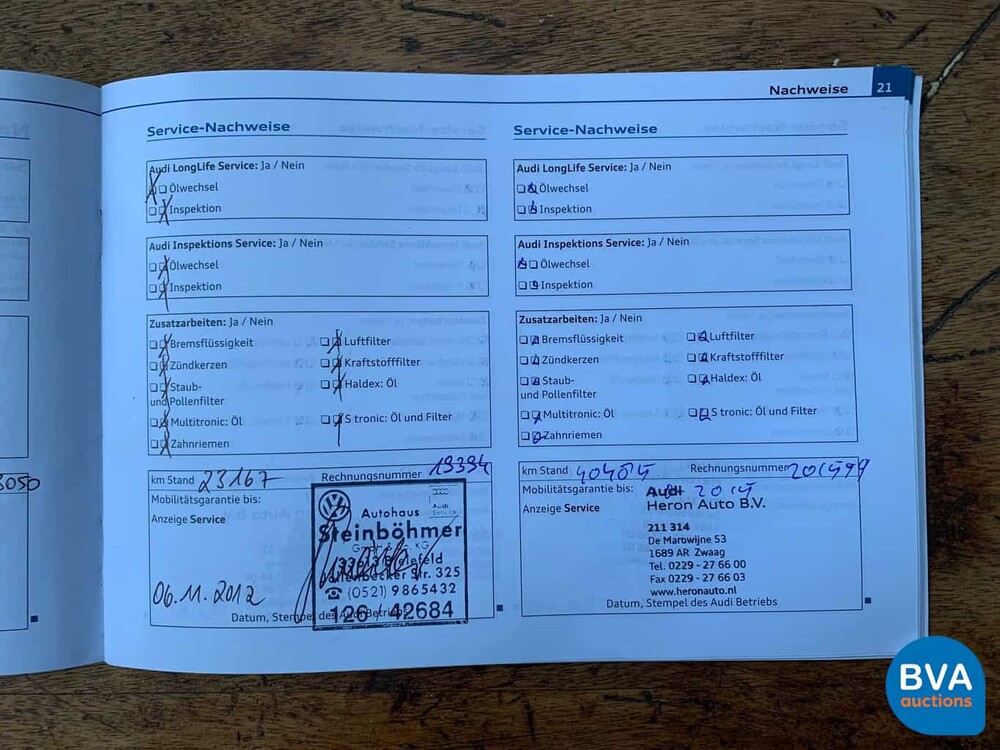 Nachweise 21
Service-Nachweise
Audi LongLife Service: Ja / Nein
Ölwechsel
Inspektion
Audi Inspektions Service: Ja / Nein
Ölwechsel
Inspektion
Zusatzarbeiten: Ja / Nein
Bremsflüssigkeit
Luftfilter
Zündkerzen
Kraftstofffilter
Staub-
und Pollenfilter
Haldex: Öl
Multitronic: Öl
S tronic: Öl und Filter
Zahnriemen
km Stand 23167
Rechnungsnummer 19394
Mobilitätsgarantie bis:
Anzeige Service
Autohaus
Audi
Service
Steinböhmer
GmbH & Co. KG
33613 Bielefeld
Str. 325
(0521) 9865432
126 / 42684
06.11.2012
Datum, Stempel des Audi Betriebs
Service-Nachweise
Audi LongLife Service: Ja / Nein
Ölwechsel
Inspektion
Audi Inspektions Service: Ja / Nein
Ölwechsel
Inspektion
Zusatzarbeiten: Ja / Nein
Bremsflüssigkeit
Luftfilter
Zündkerzen
Kraftstofffilter
Staub-
und Pollenfilter
Haldex: Öl
Multitronic: Öl
S tronic: Öl und Filter
Zahnriemen
km Stand
Rechnungsnummer
Mobilitätsgarantie bis:
Audi
Anzeige Service
Heron Auto B.V.
211 314
De Marowijne 53
1689 AR Zwaag
Tel. 0229 - 27 66 00
Fax 0229 - 27 66 03
www.heronauto.nl
Datum, Stempel des Audi Betriebs
BVA
auctions